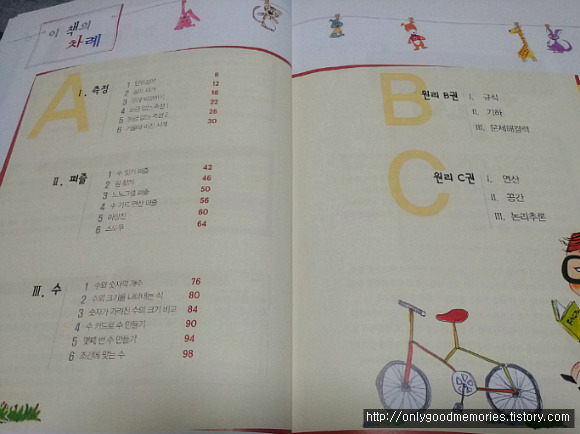 이 책의
차례
A
I. 측정
1 단위길이 8
2 길이 재기 12
3 16
4 눈금 없는 측정 1 22
5 눈금 없는 측정 2 26
6 거울에 비친 시계 30
II. 퍼즐
1 수 잇기 퍼즐 42
2 길 찾기 46
3 노노그램 퍼즐 50
4 수 카드 연산 퍼즐 56
5 마방진 60
6 스도쿠 64
III. 수
1 수와 숫자의 개수 76
2 수의 크기를 나타내는 식 80
3 숫자가 가려진 수의 크기 비교 84
4 수 카드로 수 만들기 90
5 몇째 번 수 만들기 94
6 조건에 맞는 수 98
B
원리 B권
I. 규식
II. 기하
III. 문제해결력
C
원리 C권
I. 연산
II. 공간
III. 논리추론
http://onlygoodmemories.tistory.com